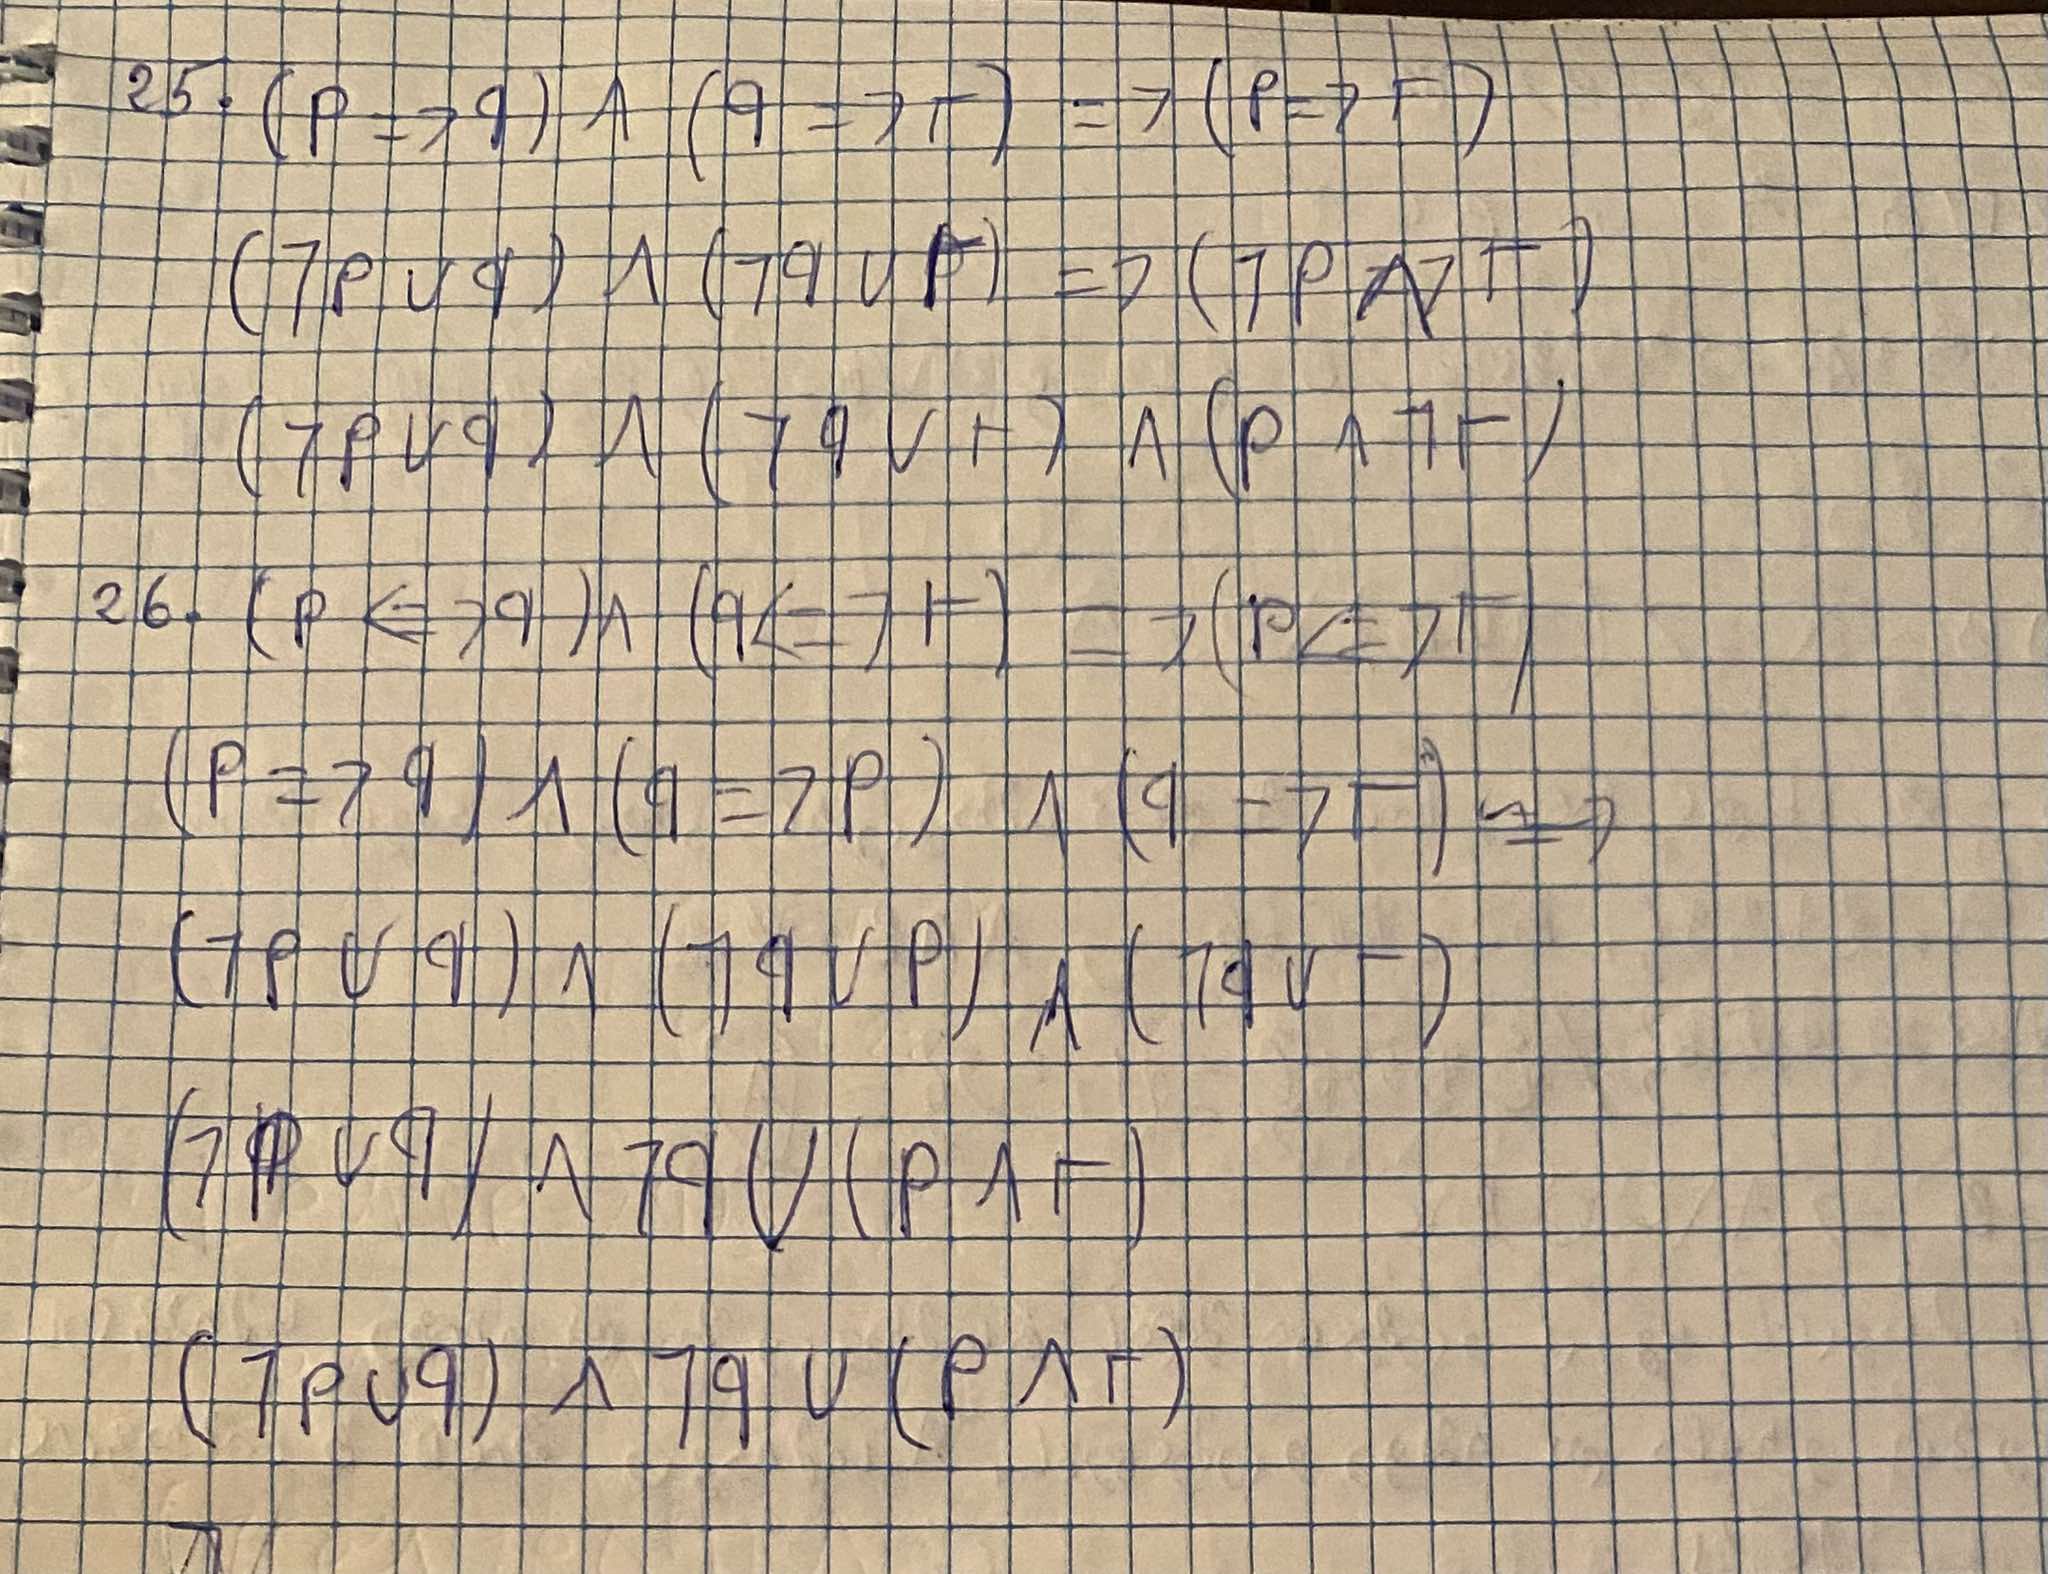 25. (p => q) ∧ (q => r) => (p => r)
(¬p ∨ q) ∧ (¬q ∨ r) => (¬p ∨ r)
(¬p ∨ q) ∧ (¬q ∨ r) ∧ (p ∧ ¬r)
26. (p <=> q) ∧ (q <=> r) => (p <=> r)
(p => q) ∧ (q => p) ∧ (q => r) =>
(¬p ∨ q) ∧ (¬q ∨ p) ∧ (¬q ∨ r)
(¬p ∨ q) ∧ ¬q ∨ (p ∧ r)
(¬p ∨ q) ∧ ¬q ∨ (p ∧ r)